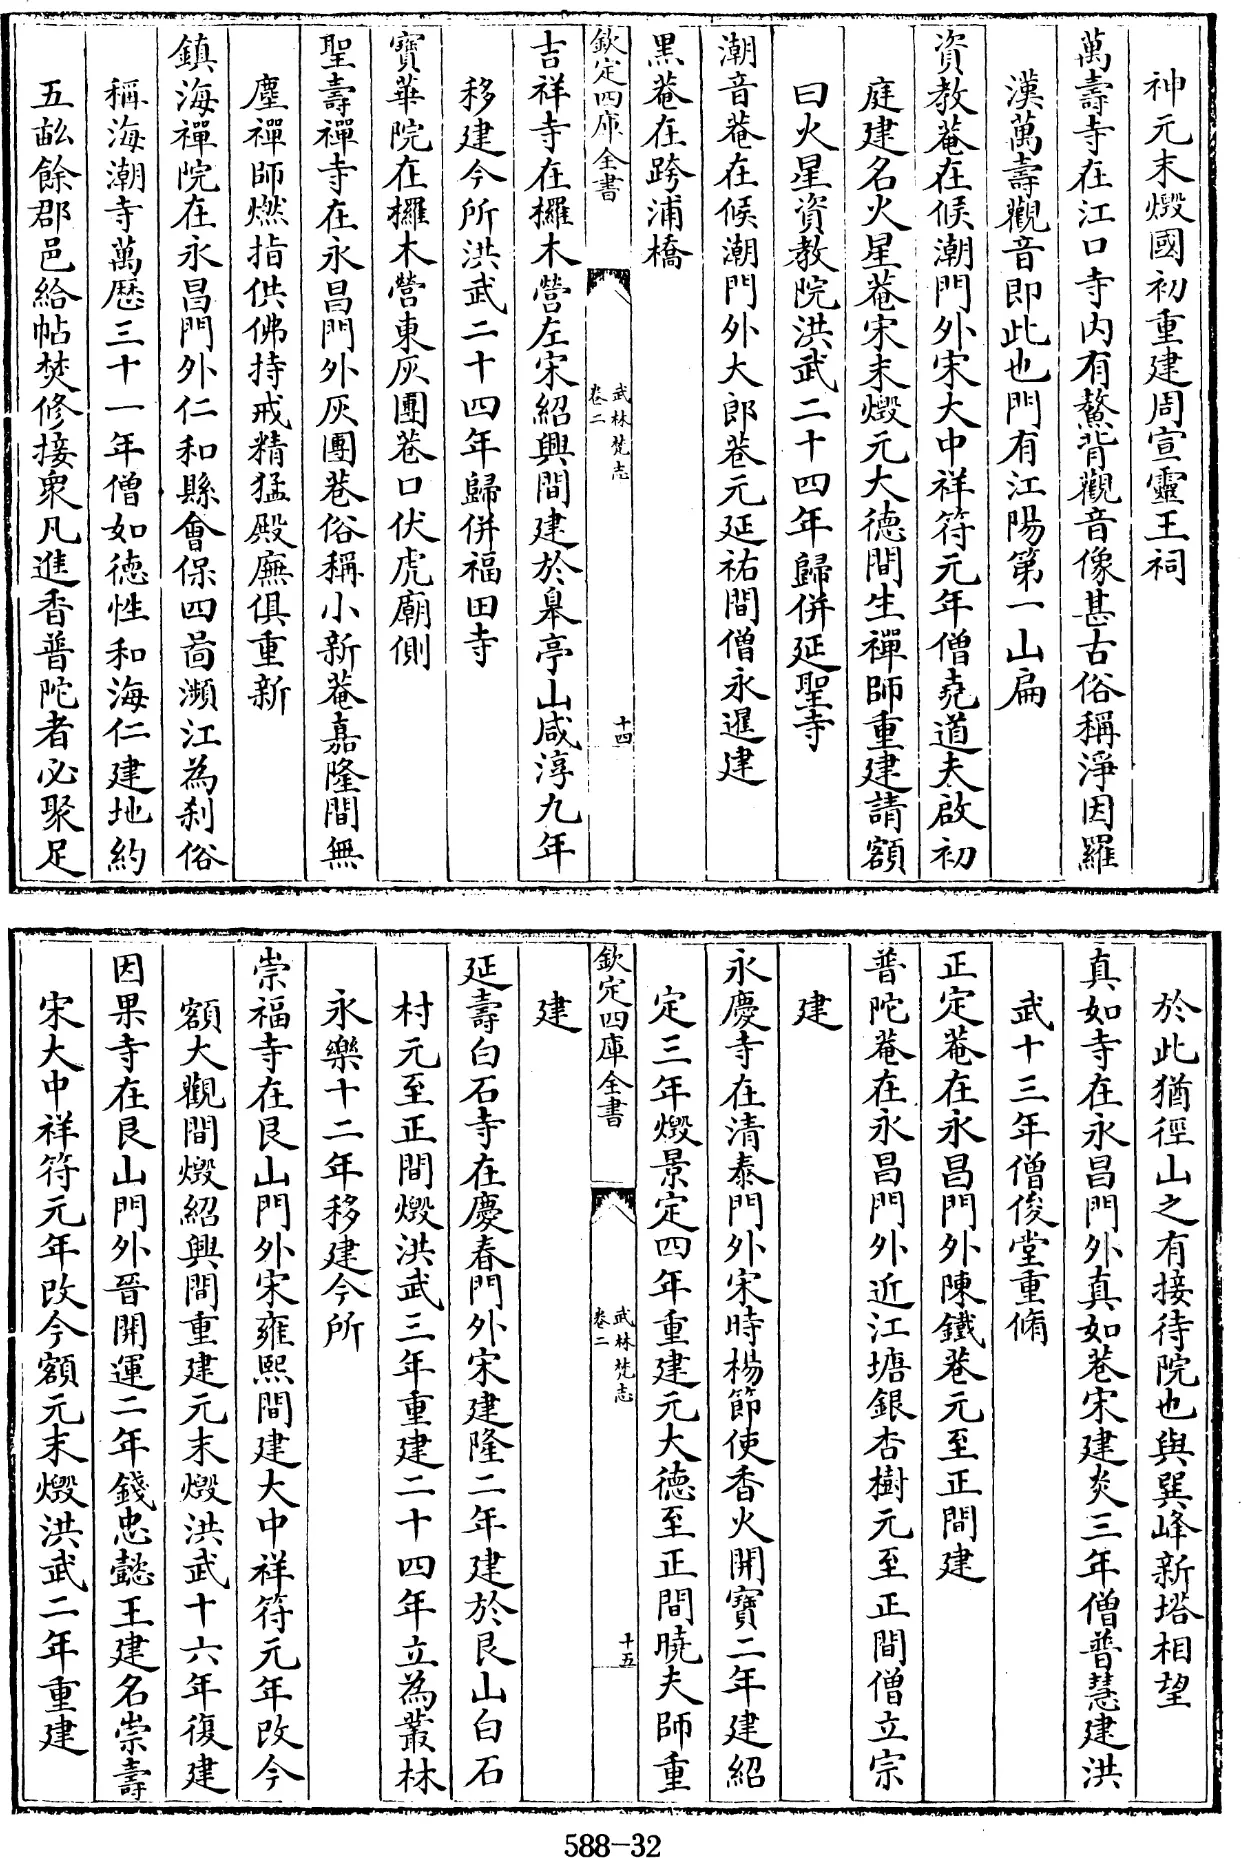 神元末燬國初重建周宣靈王祠
萬壽寺在江口寺内有鰲背觀音像甚古俗稱淨因羅
漢萬壽觀音即此也門有江陽第一山扁
資教菴在候潮門外宋大中祥符元年僧堯道夫啟初
庭建名火星菴宋末燬元大德間生禪師重建請額
曰火星資教院洪武二十四年歸併延聖寺
潮音菴在候潮門外大郎巷元延祐間僧永暹建
黑菴在跨浦橋
欽定四庫全書
武林梵志
卷二
十四
吉祥寺在欏木營左宋紹興間建於臯亭山咸淳九年
移建今所洪武二十四年歸併福田寺
寶華院在欏木營東灰團巷口伏虎廟側
聖壽禪寺在永昌門外灰團巷俗稱小新菴嘉隆間無
塵禪師燃指供佛持戒精猛殿廡俱重新
鎮海禪院在永昌門外仁和縣會保四啚瀕江為刹俗
稱海潮寺萬歴三十一年僧如德性和海仁建地約
五畝餘郡邑給帖焚修接衆凡進香普陀者必聚足
於此猶徑山之有接待院也與巽峰新塔相望
真如寺在永昌門外真如巷宋建炎三年僧普慧建洪
武十三年僧俊堂重脩
正定菴在永昌門外陳鐵巷元至正間建
普陀菴在永昌門外近江塘銀杏樹元至正間僧立宗
建
永慶寺在清泰門外宋時楊節使香火開寶二年建紹
定三年燬景定四年重建元大德至正間曉夫師重
建
欽定四庫全書
武林梵志
卷二
十五
延壽白石寺在慶春門外宋建隆二年建於艮山白石
村元至正間燬洪武三年重建二十四年立為叢林
永樂十二年移建今所
崇福寺在艮山門外宋雍熙間建大中祥符元年改今
額大觀間燬紹興間重建元末燬洪武十六年復建
因果寺在艮山門外晉開運二年錢忠懿王建名崇壽
宋大中祥符元年改今額元末燬洪武二年重建
588-32